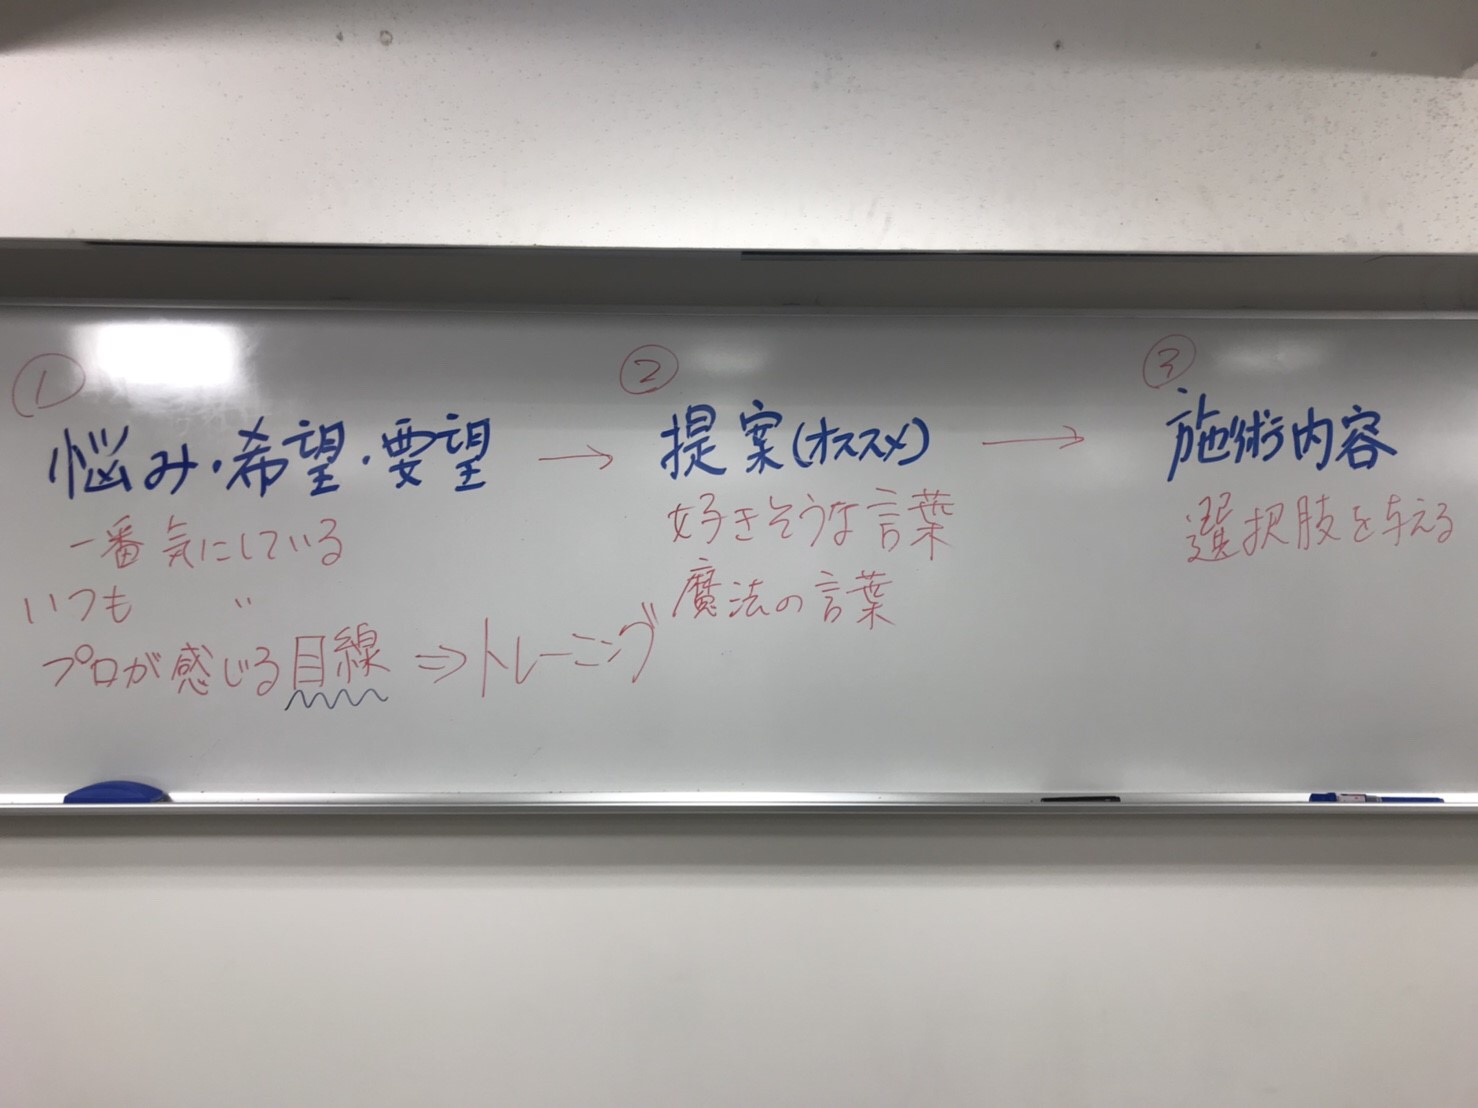 ①
悩み・希望・要望
一番気にしている
いつも 〃
プロが感じる目線 ⇒ トレーニング
→
②
提案(オススメ)
好きそうな言葉
魔法の言葉
→
③
施術内容
選択肢を与える